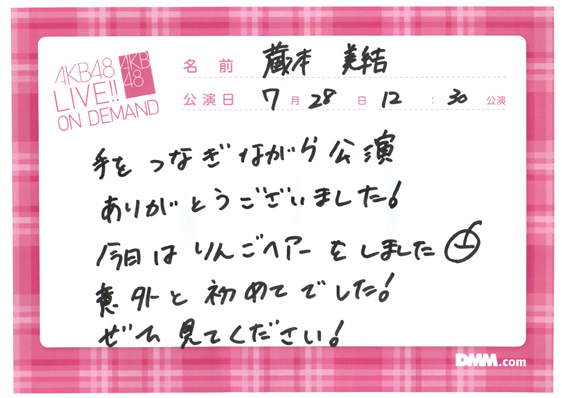 AKB48
LIVE!!
ON DEMAND
AKB
48
名前 蔵本 美結
公演日 7月28日 12:30 公演
手をつなぎながら公演
ありがとうございました!
今日はりんごヘアーをしました
意外と初めてでした!
ぜひ見てください!
DMM.com